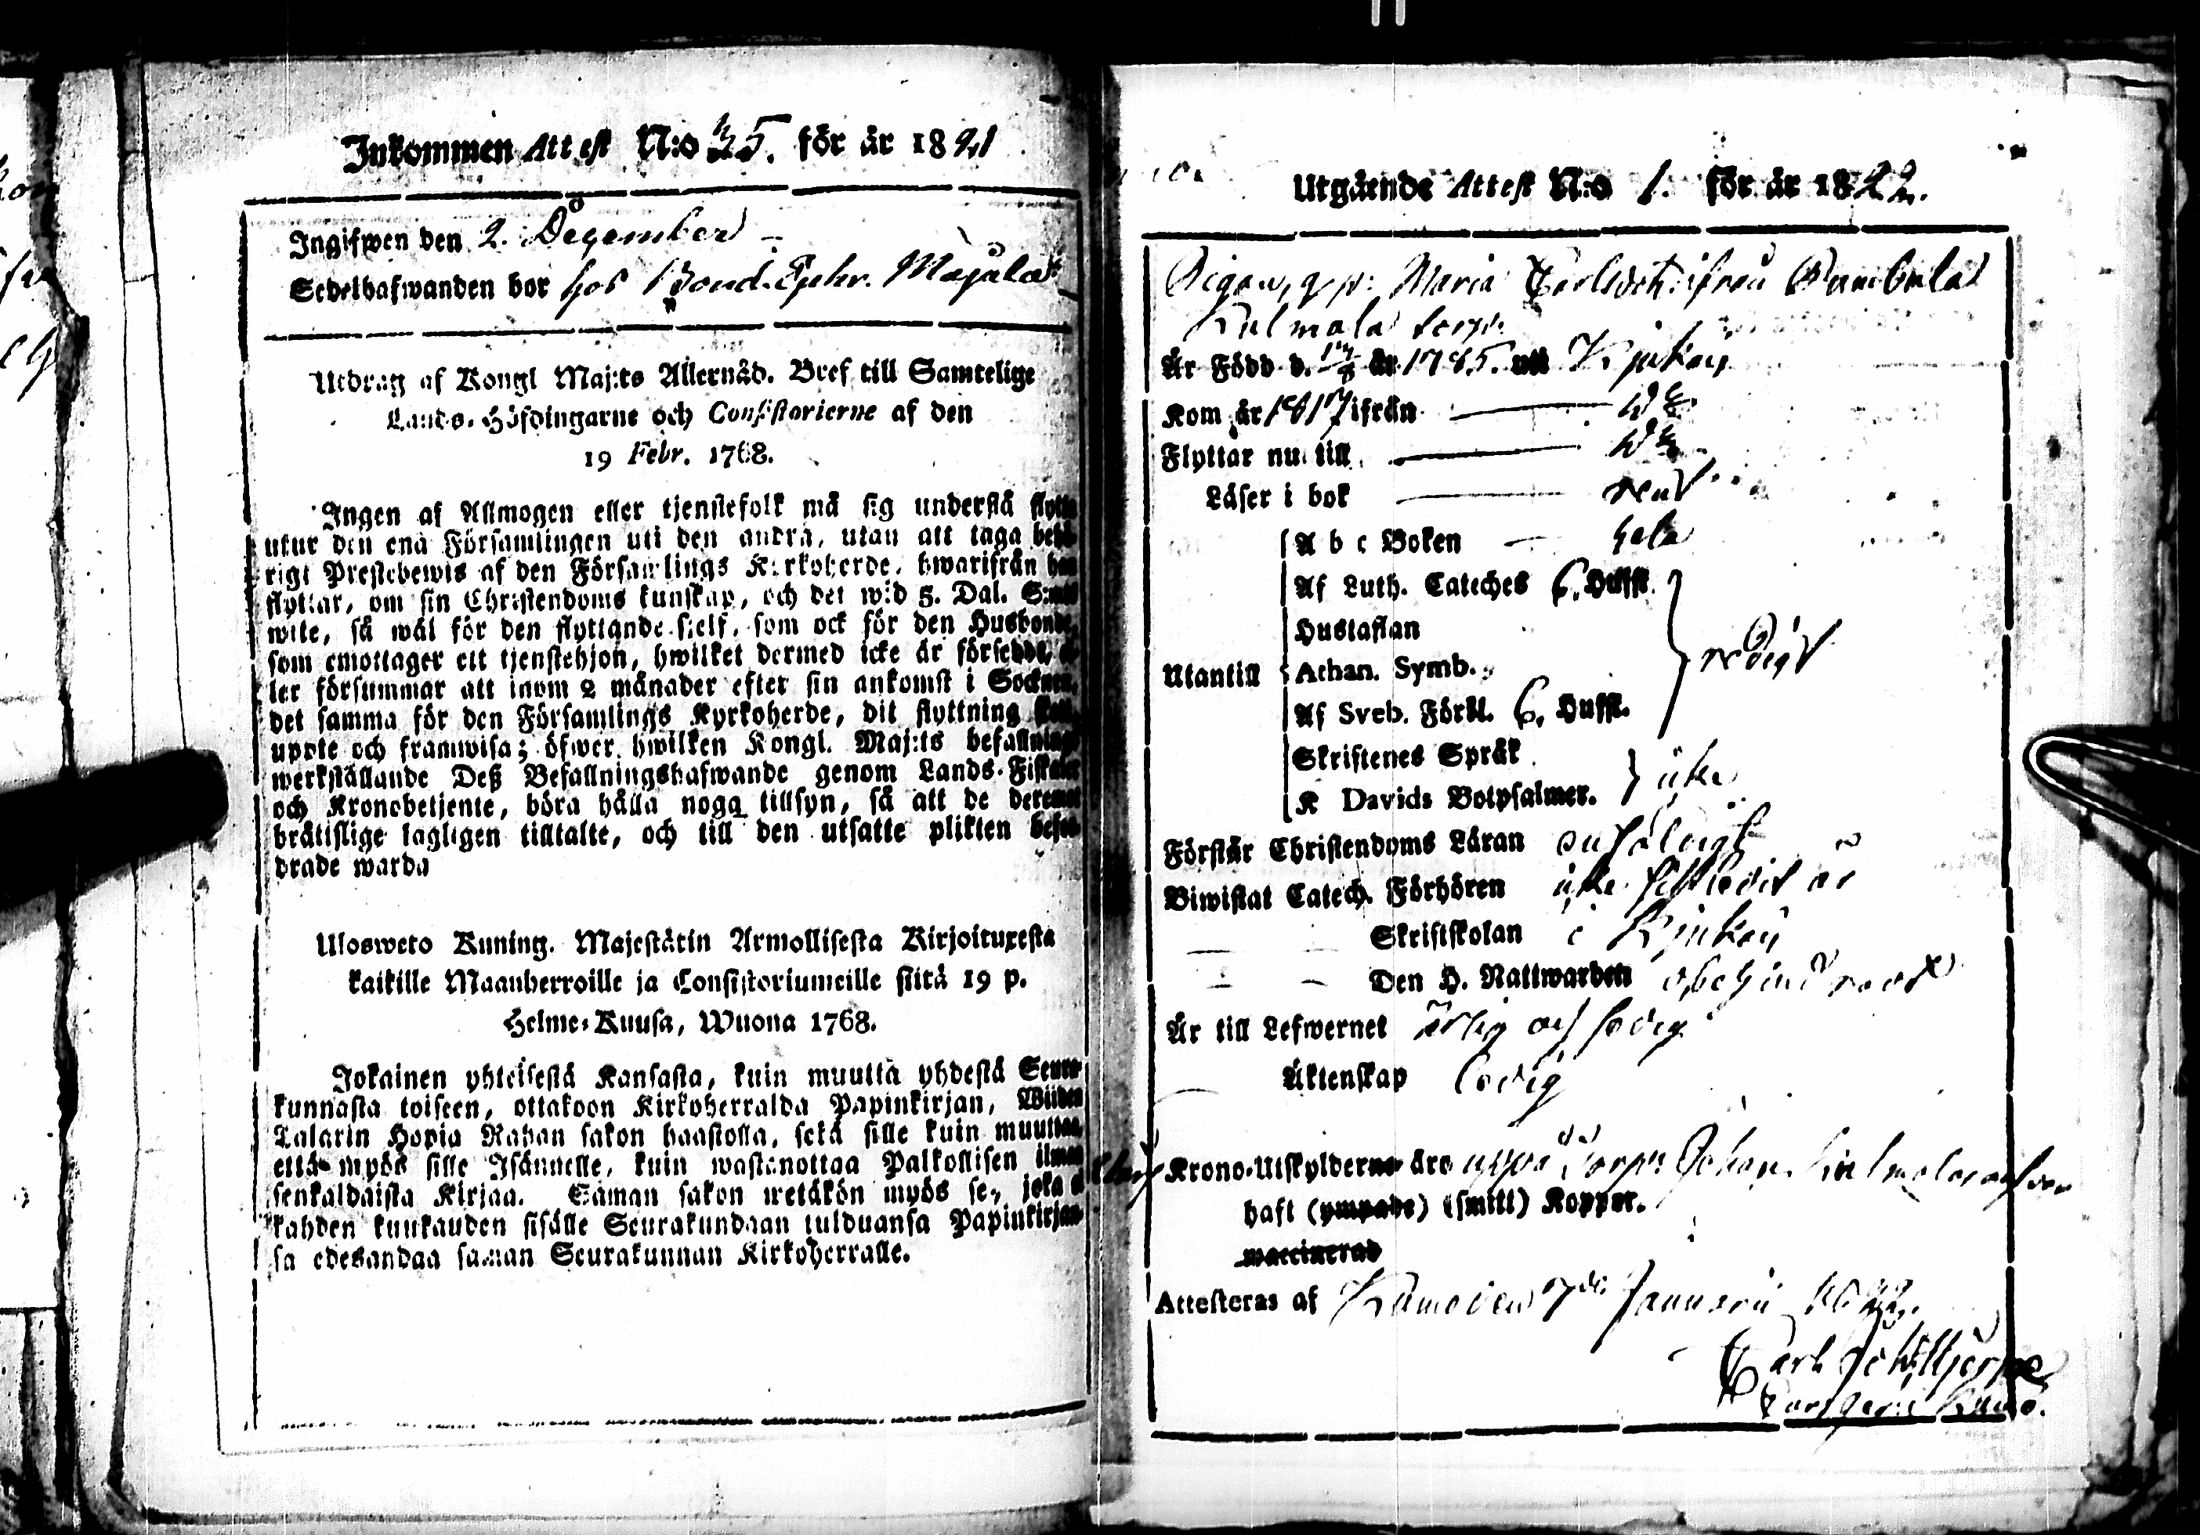 Inkommen Attest N:o 35. för år 1821
Ingifwen den 2. December
Sedelhafwanden bor hos Bond. Ephr. Majala
Utdrag af Kongl Maj:ts Allernåd. Bref till Samtelige
Lands-Höfdingarne och Consistorierne af den
19 Febr. 1768.
Ingen af Allmogen eller tjenstefolk må sig understå flytta
utur den ena Församlingen uti den andra, utan att taga behö-
rigt Prestebewis af den Församlings Kyrkoherde, hwarifrån han
flyttar, om sin Christendoms kunskap, och det wid 5. Dal. S:mts
wite, så wäl för den flyttande sielf, som ock för den Husbonde,
som emottager ett tjenstehjon, hwilket dermed icke är försedd, el-
ler försummar att inom 2 månader efter sin ankomst i Socknen,
det samma för den Församlings Kyrkoherde, dit flyttning skett,
uppte och framwisa; öfwer hwilken Kongl. Maj:ts befallnings
werkställande Deß Befallningshafwande genom Lands-Fiskaler
och Kronobetjente, böra hålla noga tillsyn, så att de deremot
bråtislige lagligen tilltalte, och till den utsatte plikten befor-
drade warda
Ulosweto Kuning. Majestätin Armollisesta Kirjoituxesta
kaikille Maanherroille ja Consistoriumeille siitä 19 p.
Helme-Kuusa, Wuona 1768.
Jokainen yhteisestä Kansasta, kuin muutta yhdestä Seura-
kunnasta toiseen, ottakoon Kirkoherralda Papinkirjan, Wiiden
Talarin Hopia Rahan sakon haastolla, sekä sille kuin muuttaa,
että myös sille Isännelle, kuin wastanottaa Palkollisen ilman
senkaldaista Kirjaa. Saman sakon wetäkön myös se, joka ei
kahden kuukauden sisälle Seurakundaan tulduansa Papinkirjaan-
sa edesandaa saman Seurakunnan Kirkoherralle.
Utgående Attest N:o 1. för år 1822.
Pigan, Maria Carlsdotr ifrån
Kulmala torp
Är Född d. 13/8 år 1785. uti Kjukoi
Kom år 1817 ifrån
Flyttar nu till
Läser i bok rent
Utantill
A b c Boken hela
Af Luth. Cateches 6. Hufst.
Hustaflan
Athan. Symb. redigt
Af Sveb. Förkl. 6. Hufst.
Skriftenes Språk
K Davids Botpsalmer. icke
Förstår Christendoms Läran enfaldigt
Biwistat Catech. Förhören icke sist år
Skriftskolan i Kjukoi
Den H. Nattwarden obehindradt
Är till Lefwernet ärlig och sedig
Äktenskap ledig
Krono-Utskylderne äro uppå Torp. Johan Kulmala
haft (ympade) (smitt) Koppor.
waccinerad
Attesteras af Kumo den 7de Januarii 1822.
Carl